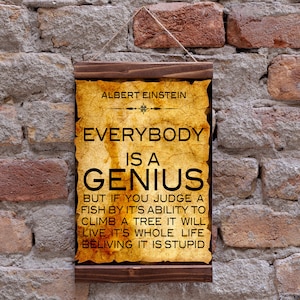 ALBERT EINSTEIN
EVERYBODY
IS A
GENIUS
BUT IF YOU JUDGE A
FISH BY IT'S ABILITY TO
CLIMB A TREE IT WILL
LIVE IT'S WHOLE LIFE
BELIVING IT IS STUPID